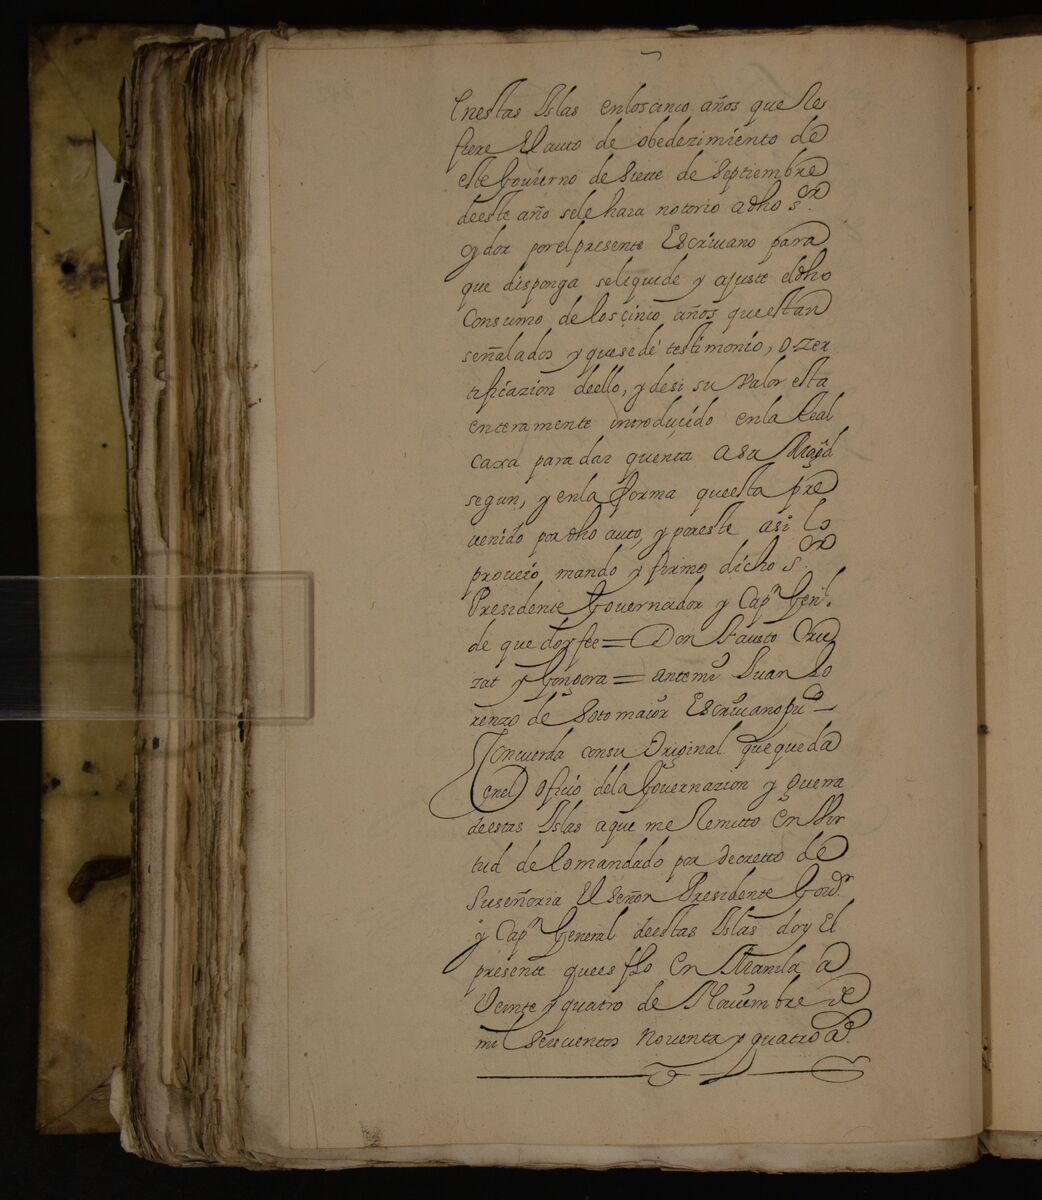 enestas Islas enlos cinco años que Re
fiere El auto de obedezimiento de
este Govierno de Siette de Septiembre
deeste año sele hara notorio adho s.or
oydor porelpresente Escriuano para
que disponga seliquide y ajuste eldho
Consumo delos çinco años queestan
señalados y quesedé testimonio, o zer
tificazion deello, y desi su valor esta
enteramente introduçido enla Real
caxa para dar quenta a Su Magd
segun, y enla forma queesta pre
uenido por dho auto, y poreste asi lo
proueió mando y firmo dicho s.or
Presidente Gouernador y Capn Genl.
de que doy fee = Don Fausto Cru
zat y Gongora = antemi Juan Lo
renzo de Sotomaior Escriuano pu.co
Concuerda consu Original que queda
enel Ofiçio dela Gouernazion y Guerra
deestas Islas aque me Remitto en Vir
tud de lo mandado por decretto de
suseñoria El señor Presidente Gour.
y Capn General deestas Islas doy El
presente quees fho en Manila a
Veinte y quatro de Nouiembre de
mil Seiscientos Nouenta y quatro as.